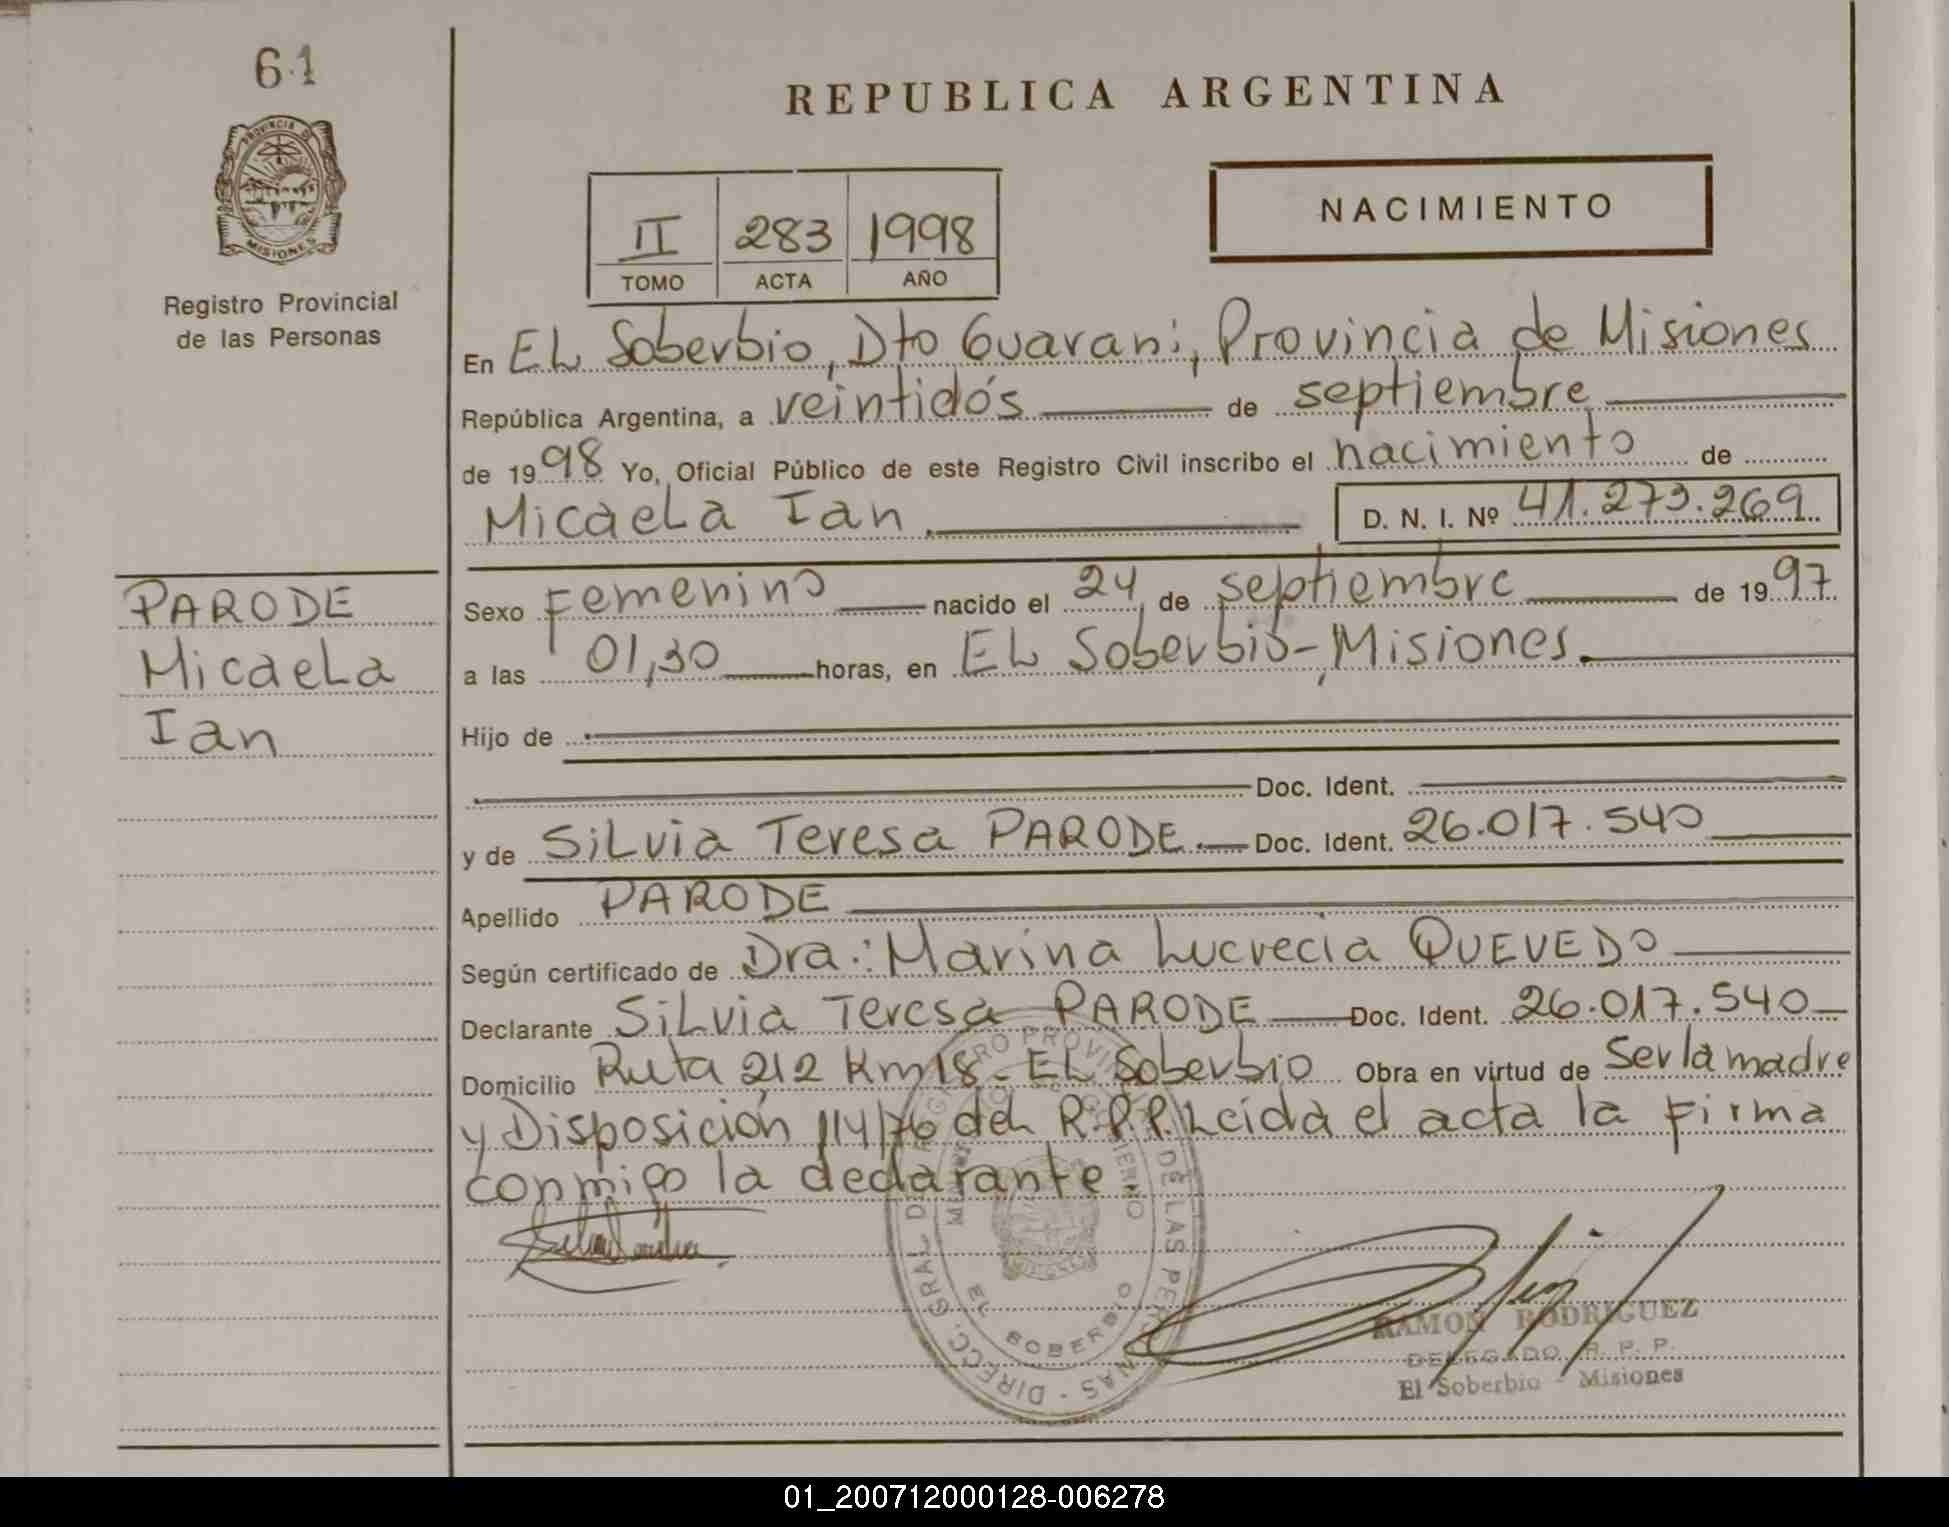 61
PROVINCIA DE
MISIONES
Registro Provincial
de las Personas
PARODE
Micaela
Ian
REPUBLICA ARGENTINA
II 283 1998
TOMO ACTA AÑO
NACIMIENTO
En El Soberbio, Dto Guarani, Provincia de Misiones
República Argentina, a veintidós de septiembre
de 1998 Yo, Oficial Público de este Registro Civil inscribo el nacimiento de
Micaela Ian. D. N. I. Nº 41.273.269
Sexo Femenino nacido el 24 de septiembre de 1997
a las 01,30 horas, en El Soberbio-Misiones.
Hijo de
Doc. Ident.
y de Silvia Teresa PARODE.— Doc. Ident. 26.017.540
Apellido PARODE
Según certificado de Dra: Marina Lucrecia QUEVEDO
Declarante Silvia Teresa PARODE Doc. Ident. 26.017.540
Domicilio Ruta 212 Km 18 - El Soberbio Obra en virtud de Ser la madre
y Disposición 114/76 del R.P.P. Leída el acta la firma
conmigo la declarante.
DIRECC. GRAL DEL REGISTRO PROVINCIAL DE LAS PERSONAS
EL SOBERBIO
RAMON RODRIGUEZ
DELEGADO R. P. P.
El Soberbio - Misiones
01_200712000128-006278